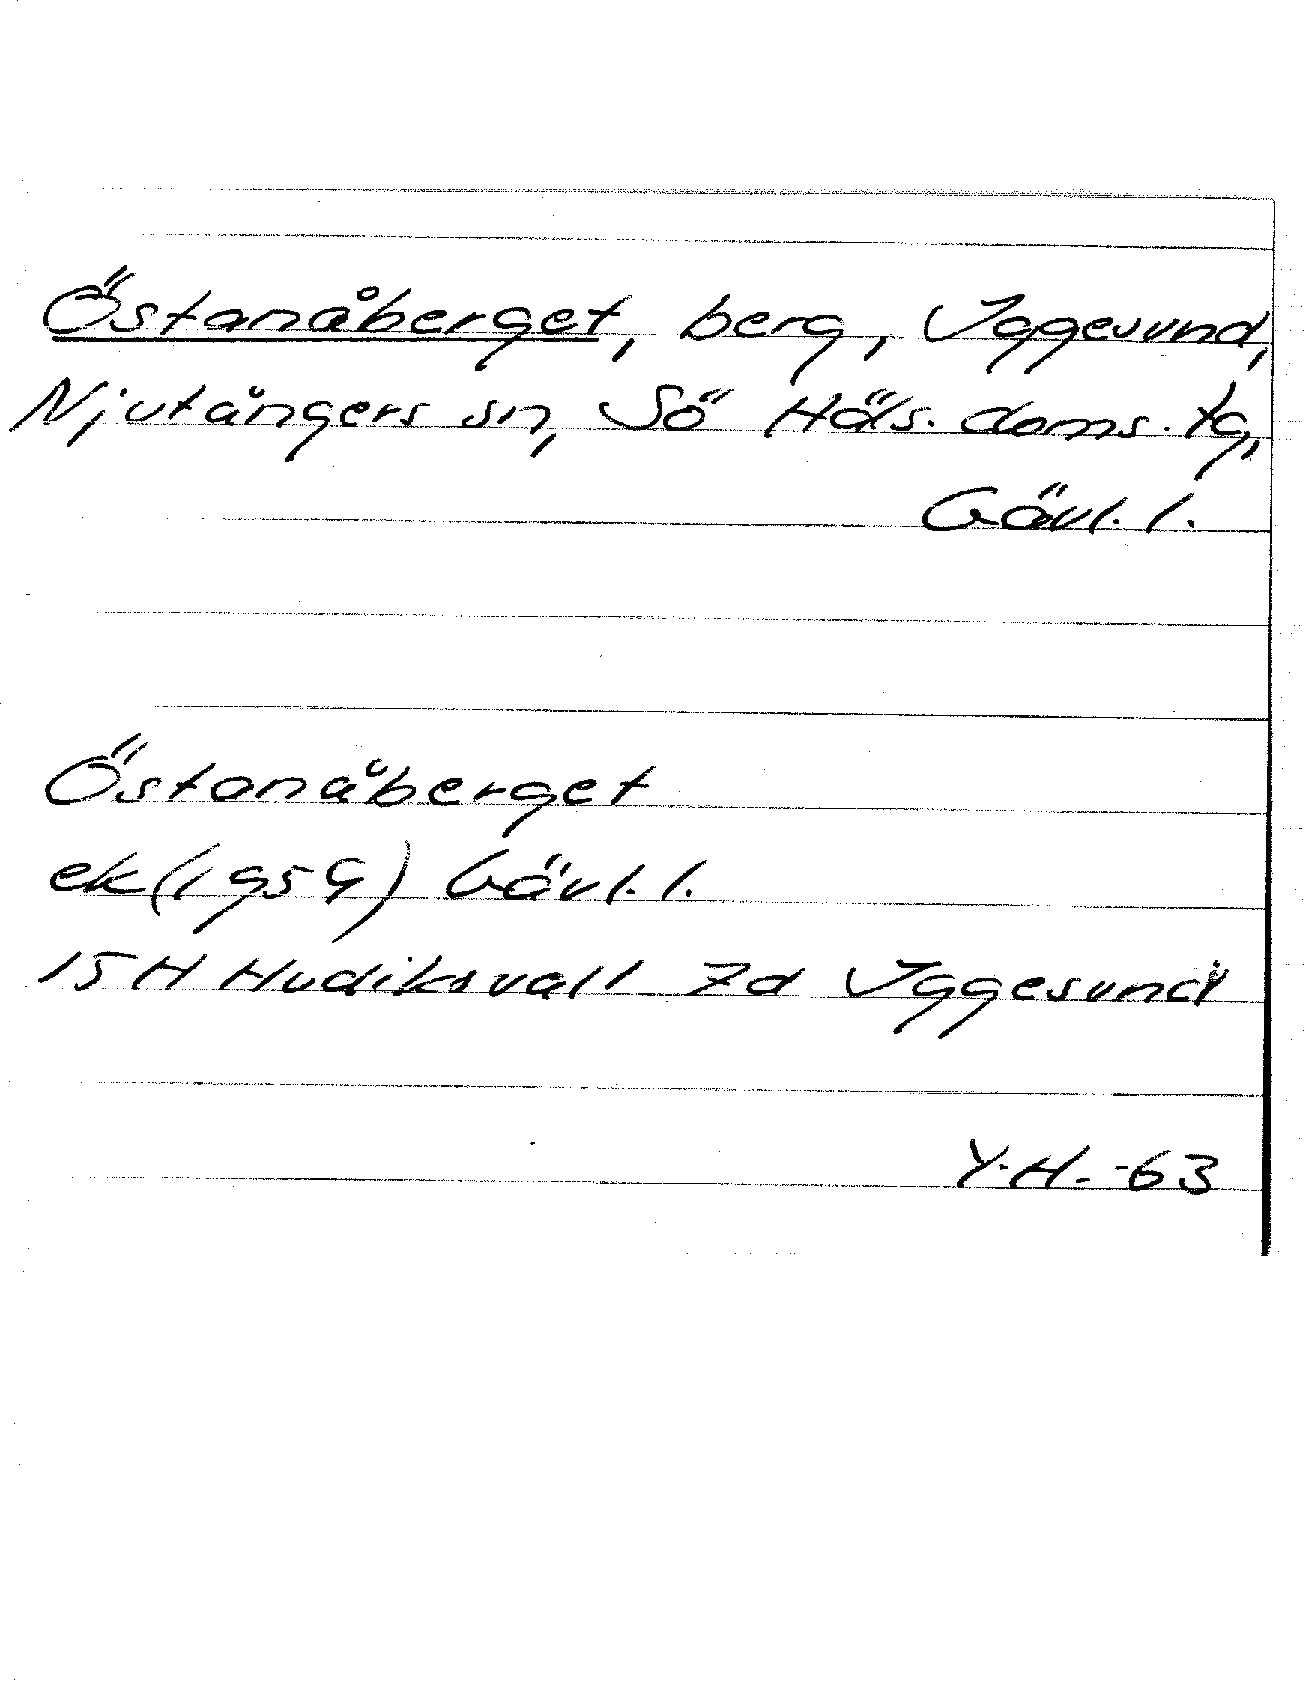 Östanåberget, berg, Iggesund,
Njutångers sn, Sö Häls. doms. tg,
Gävl. l.
Östanåberget
ek (1959) Gävl. l.
15H Hudiksvall 7d Iggesund
Y.H. -63